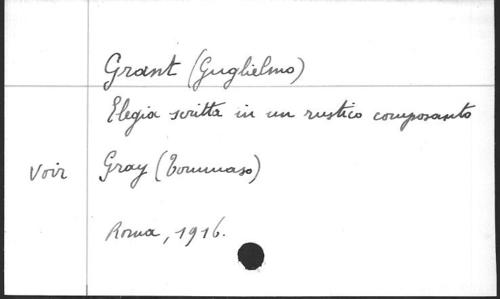 Grant (Guglielmo)
Elegia scritta in un rustico composanto
Voir Gray (Tommaso)
Roma, 1916.